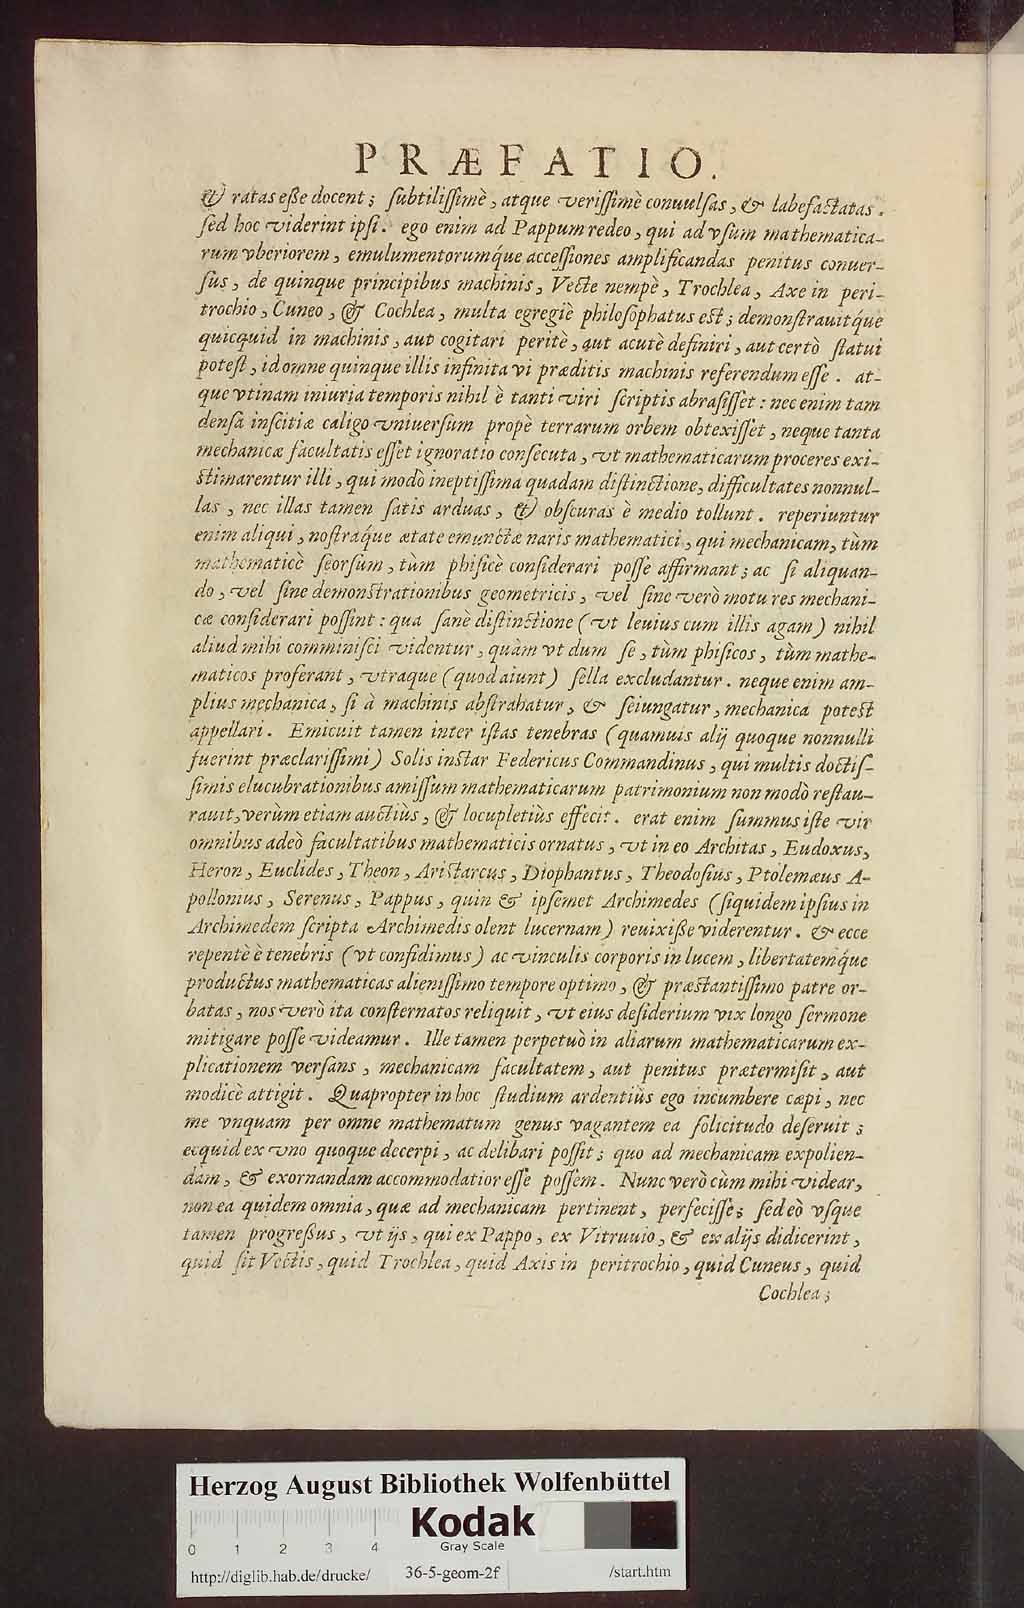 PRÆFATIO.
& ratas eſſe docent; ſubtiliſſimè, atque veriſſimè conuulſas, & labefactatas.
ſed hoc viderint ipſi. ego enim ad Pappum redeo, qui ad vſum mathematica-
rum vberiorem, emulumentorumq́ue acceſſiones amplificandas penitus conuer-
ſus, de quinque principibus machinis, Vecte nempè, Trochlea, Axe in peri-
trochio, Cuneo, & Cochlea, multa egregiè philoſophatus eſt; demonſtrauitq́ue
quicquid in machinis, aut cogitari peritè, aut acutè definiri, aut certò ſtatui
poteſt, id omne quinque illis infinita vi præditis machinis referendum eſſe. at-
que vtinam iniuria temporis nihil è tanti viri ſcriptis abraſiſſet: nec enim tam
denſa inſcitiæ caligo vniuerſum propè terrarum orbem obtexiſſet, neque tanta
mechanicæ facultatis eſſet ignoratio conſecuta, vt mathematicarum proceres exi-
ſtimarentur illi, qui modò ineptiſſima quadam diſtinctione, difficultates nonnul-
las, nec illas tamen ſatis arduas, & obſcuras è medio tollunt. reperiuntur
enim aliqui, noſtraq́ue ætate emunctæ naris mathematici, qui mechanicam, tùm
mathematicè ſeorſum, tùm phiſicè conſiderari poſſe affirmant; ac ſi aliquan-
do, vel ſine demonſtrationibus geometricis, vel ſine verò motu res mechani-
cæ conſiderari poſſint: qua ſanè diſtinctione (vt leuius cum illis agam) nihil
aliud mihi comminiſci videntur, quàm vt dum ſe, tùm phiſicos, tùm mathe-
maticos proferant, vtraque (quod aiunt) ſella excludantur. neque enim am-
plius mechanica, ſi à machinis abſtrahatur, & ſeiungatur, mechanica poteſt
appellari. Emicuit tamen inter iſtas tenebras (quamuis alij quoque nonnulli
fuerint præclariſſimi) Solis inſtar Federicus Commandinus, qui multis doctiſ-
ſimis elucubrationibus amiſſum mathematicarum patrimonium non modò reſtau-
rauit, verùm etiam auctiùs, & locupletiùs effecit. erat enim ſummus iſte vir
omnibus adeò facultatibus mathematicis ornatus, vt in eo Architas, Eudoxus,
Heron, Euclides, Theon, Ariſtarcus, Diophantus, Theodoſius, Ptolemæus A-
pollonius, Serenus, Pappus, quin & ipſemet Archimedes (ſiquidem ipſius in
Archimedem ſcripta Archimedis olent lucernam) reuixiſſe viderentur. & ecce
repentè è tenebris (vt confidimus) ac vinculis corporis in lucem, libertatemq́ue
productus mathematicas alieniſſimo tempore optimo, & præſtantiſſimo patre or-
batas, nos verò ita conſternatos reliquit, vt eius deſiderium vix longo ſermone
mitigare poſſe videamur. Ille tamen perpetuò in aliarum mathematicarum ex-
plicationem verſans, mechanicam facultatem, aut penitus prætermiſit, aut
modicè attigit. Quapropter in hoc ſtudium ardentiùs ego incumbere cæpi, nec
me vnquam per omne mathematum genus vagantem ea ſolicitudo deſeruit;
ecquid ex vno quoque decerpi, ac delibari poſſit; quo ad mechanicam expolien-
dam, & exornandam accommodatior eſſe poſſem. Nunc verò cùm mihi videar,
non ea quidem omnia, quæ ad mechanicam pertinent, perfeciſſe; ſed eò vſque
tamen progreſſus, vt ijs, qui ex Pappo, ex Vitruuio, & ex alijs didicerint,
quid ſit Vectis, quid Trochlea, quid Axis in peritrochio, quid Cuneus, quid
Cochlea;
Herzog August Bibliothek Wolfenbüttel
Kodak
Gray Scale
0 1 2 3 4
http://diglib.hab.de/drucke/ 36-5-geom-2f /start.htm